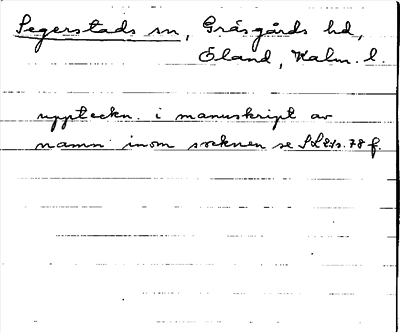 Segerstads sn, Gräsgårds hd,
Öland, Kalm. l.
uppteckn. i manuskript av
namn inom socknen se